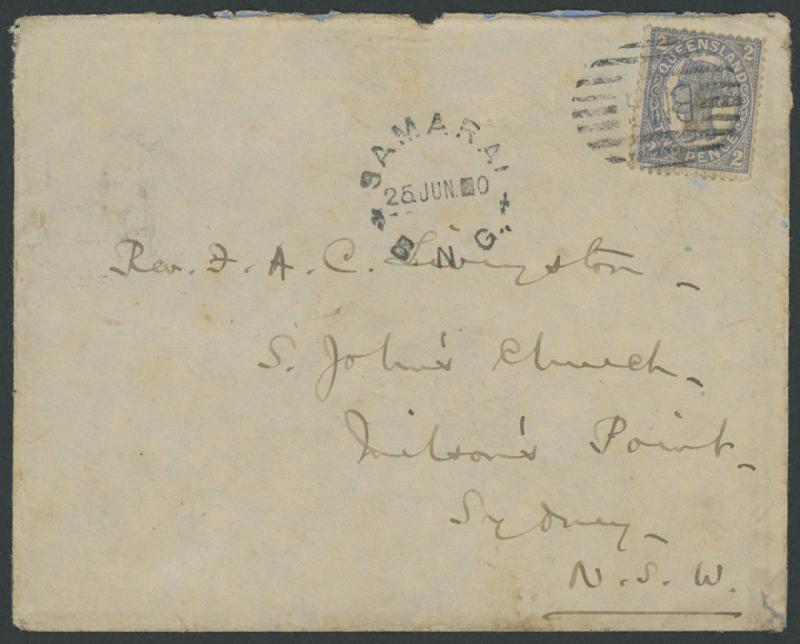 QUEENSLAND
2 2
TWO PENCE
2 2
SAMARAI
25 JUN. 0
B. N. G.
Rev. F. A. C. Livingston
S. John's Church
Milson's Point
Sydney
N. S. W.